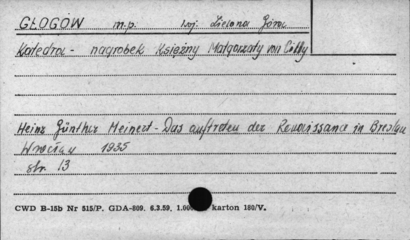 GŁOGÓW m.p. woj. Zielona Góra
Katedra - nagrobek Księżny Małgorzaty von Cilly
Heinz Günther Meinert - Das auftreten der Renaissance in Breslau
Wrocław 1935
str. 13
CWD B-15b Nr 515/P. GDA-809. 6.3.59. 1.000 karton 180/V.